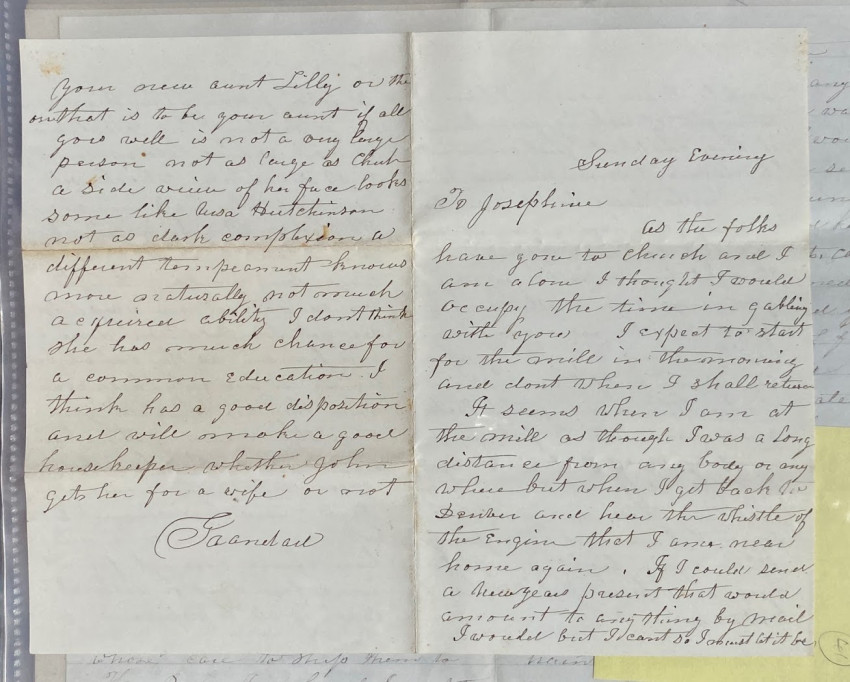 Sunday Evening
To Josephine
as the folks
have gone to church and I
am alone I thought I would
occupy the time in gabling
with you I expect to start
for the mill in the morning
and dont when I shall return
It seems when I am at
the mill as though I was a long
distance from any body or any
where but when I get back to
Denver and hear the whistle of
the Engine that I am near
home again. If I could send
a new years present that would
amount to anything by mail
I would but I cant so I must let it be
your new aunt Lilly or the
on that is to be your aunt if all
gows well is not a very large
person not as large as Chub
a side view of her face looks
some like Hutchinson
not as dark complexion a
different knows
more naturally not much
acquired ability I dont think
she has much chance for
a common Education. I
think has a good disposition
and will make a good
housekeeper whether John
gets her for a wife or not